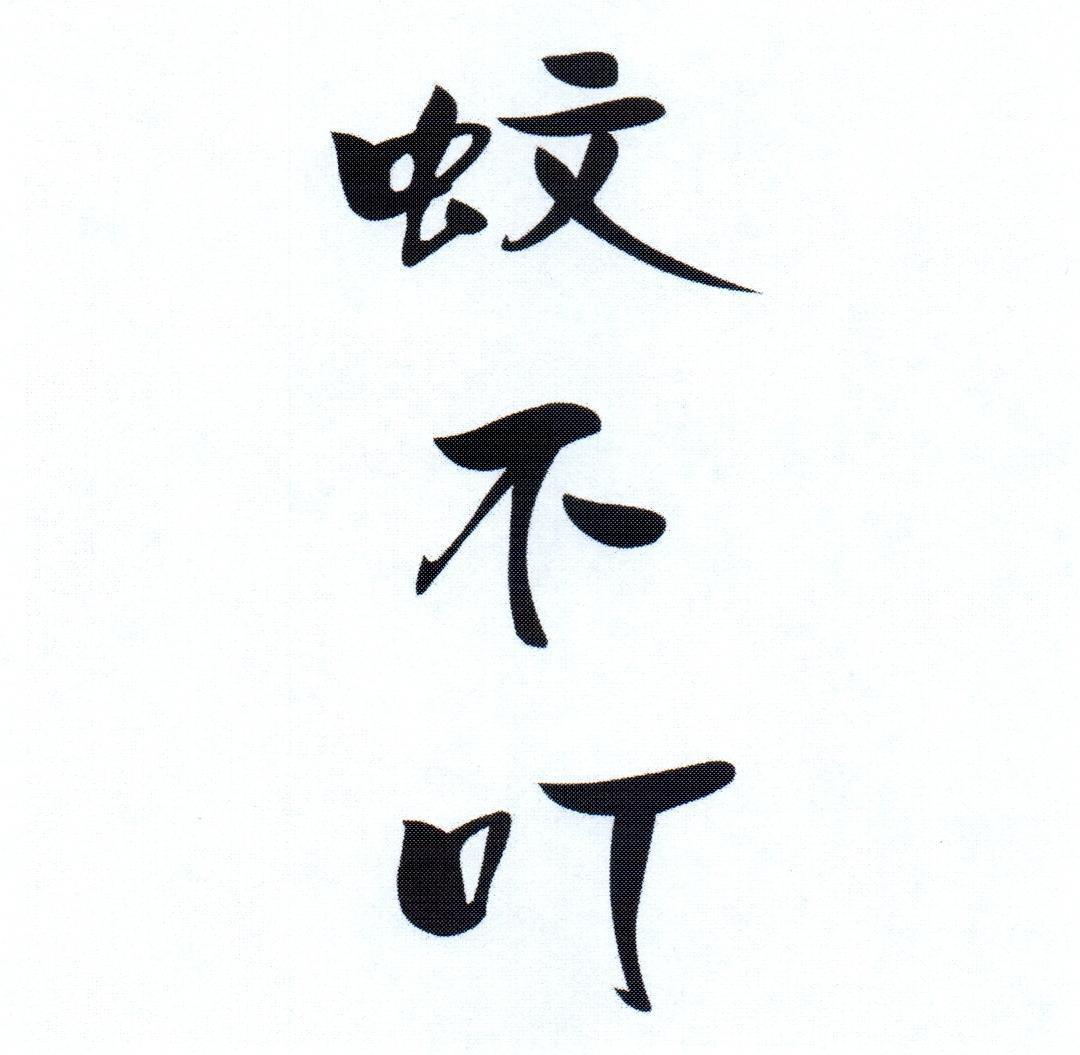 蚊不叮